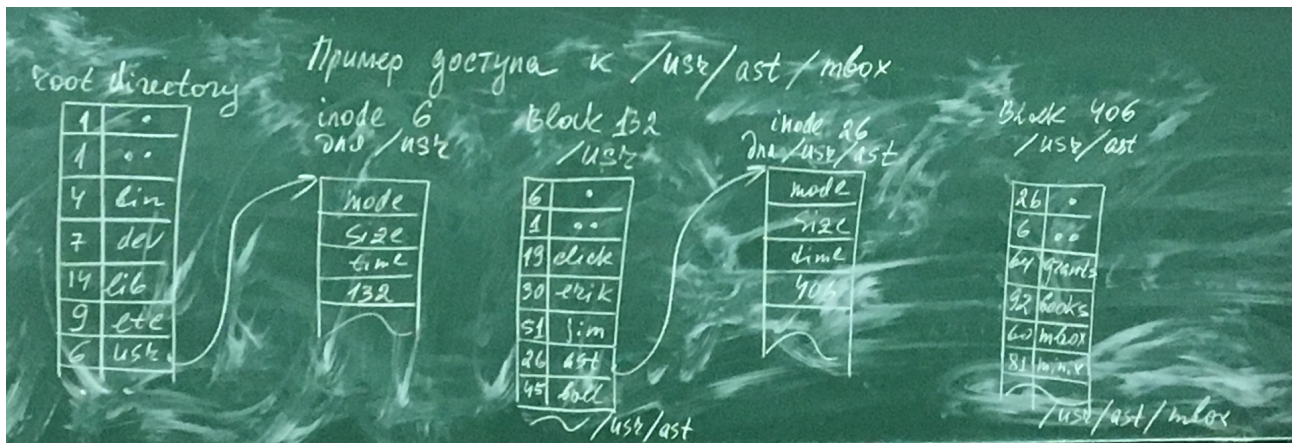 Пример доступа к /usr/ast/mbox
root directory
1 .
1 ..
4 bin
7 dev
14 lib
9 etc
6 usr
inode 6
для /usr
mode
size
time
132
Block 132
/usr
6 .
1 ..
19 dick
30 erik
51 jim
26 ast
45 ball
/usr/ast
inode 26
для /usr/ast
mode
size
time
406
Block 406
/usr/ast
26 .
6 ..
64 grants
92 books
60 mbox
81 minix
/usr/ast/mbox